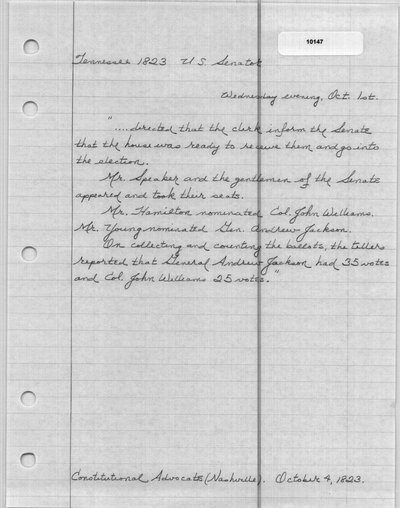 10147
Tennessee 1823 U.S. Senator
Wednesday evening, Oct. 1st.
"....directed that the clerk inform the Senate
that the house was ready to receive them and go into
the election.
Mr. Speaker and the gentlemen of the Senate
appeared and took their seats.
Mr. Hamilton nominated Col. John Williams.
Mr. Young nominated Gen. Andrew Jackson.
On collecting and counting the ballots, the tellers
reported that General Andrew Jackson had 35 votes
and Col. John Williams 25 votes."
Constitutional Advocate (Nashville). October 4, 1823.